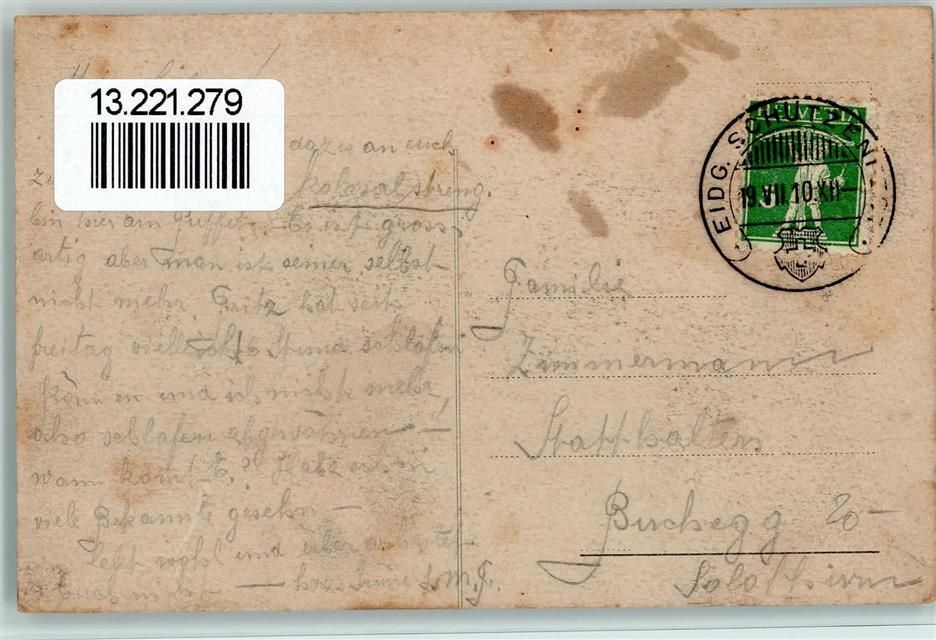 13.221.279
dazu an euch
kolosal streng.
bin hier am Büffet. Es ist gross
artig aber man ist seiner selbst
nicht mehr. Fritz hat seit
freitag vielleicht Stund schlafen
könn en und ich nicht mehr,
also schlafen abgewöhnen —
wann kom t E.? Habe schon
viele Bekannte gesehn —
Lebt wohl und überarbeitet
Euch nicht —
HELVETIA
EIDG. SCHÜTZEN
19. VII 10. XII —
Familie
Zimmermann
Statthalters
Buchegg
Solothurn